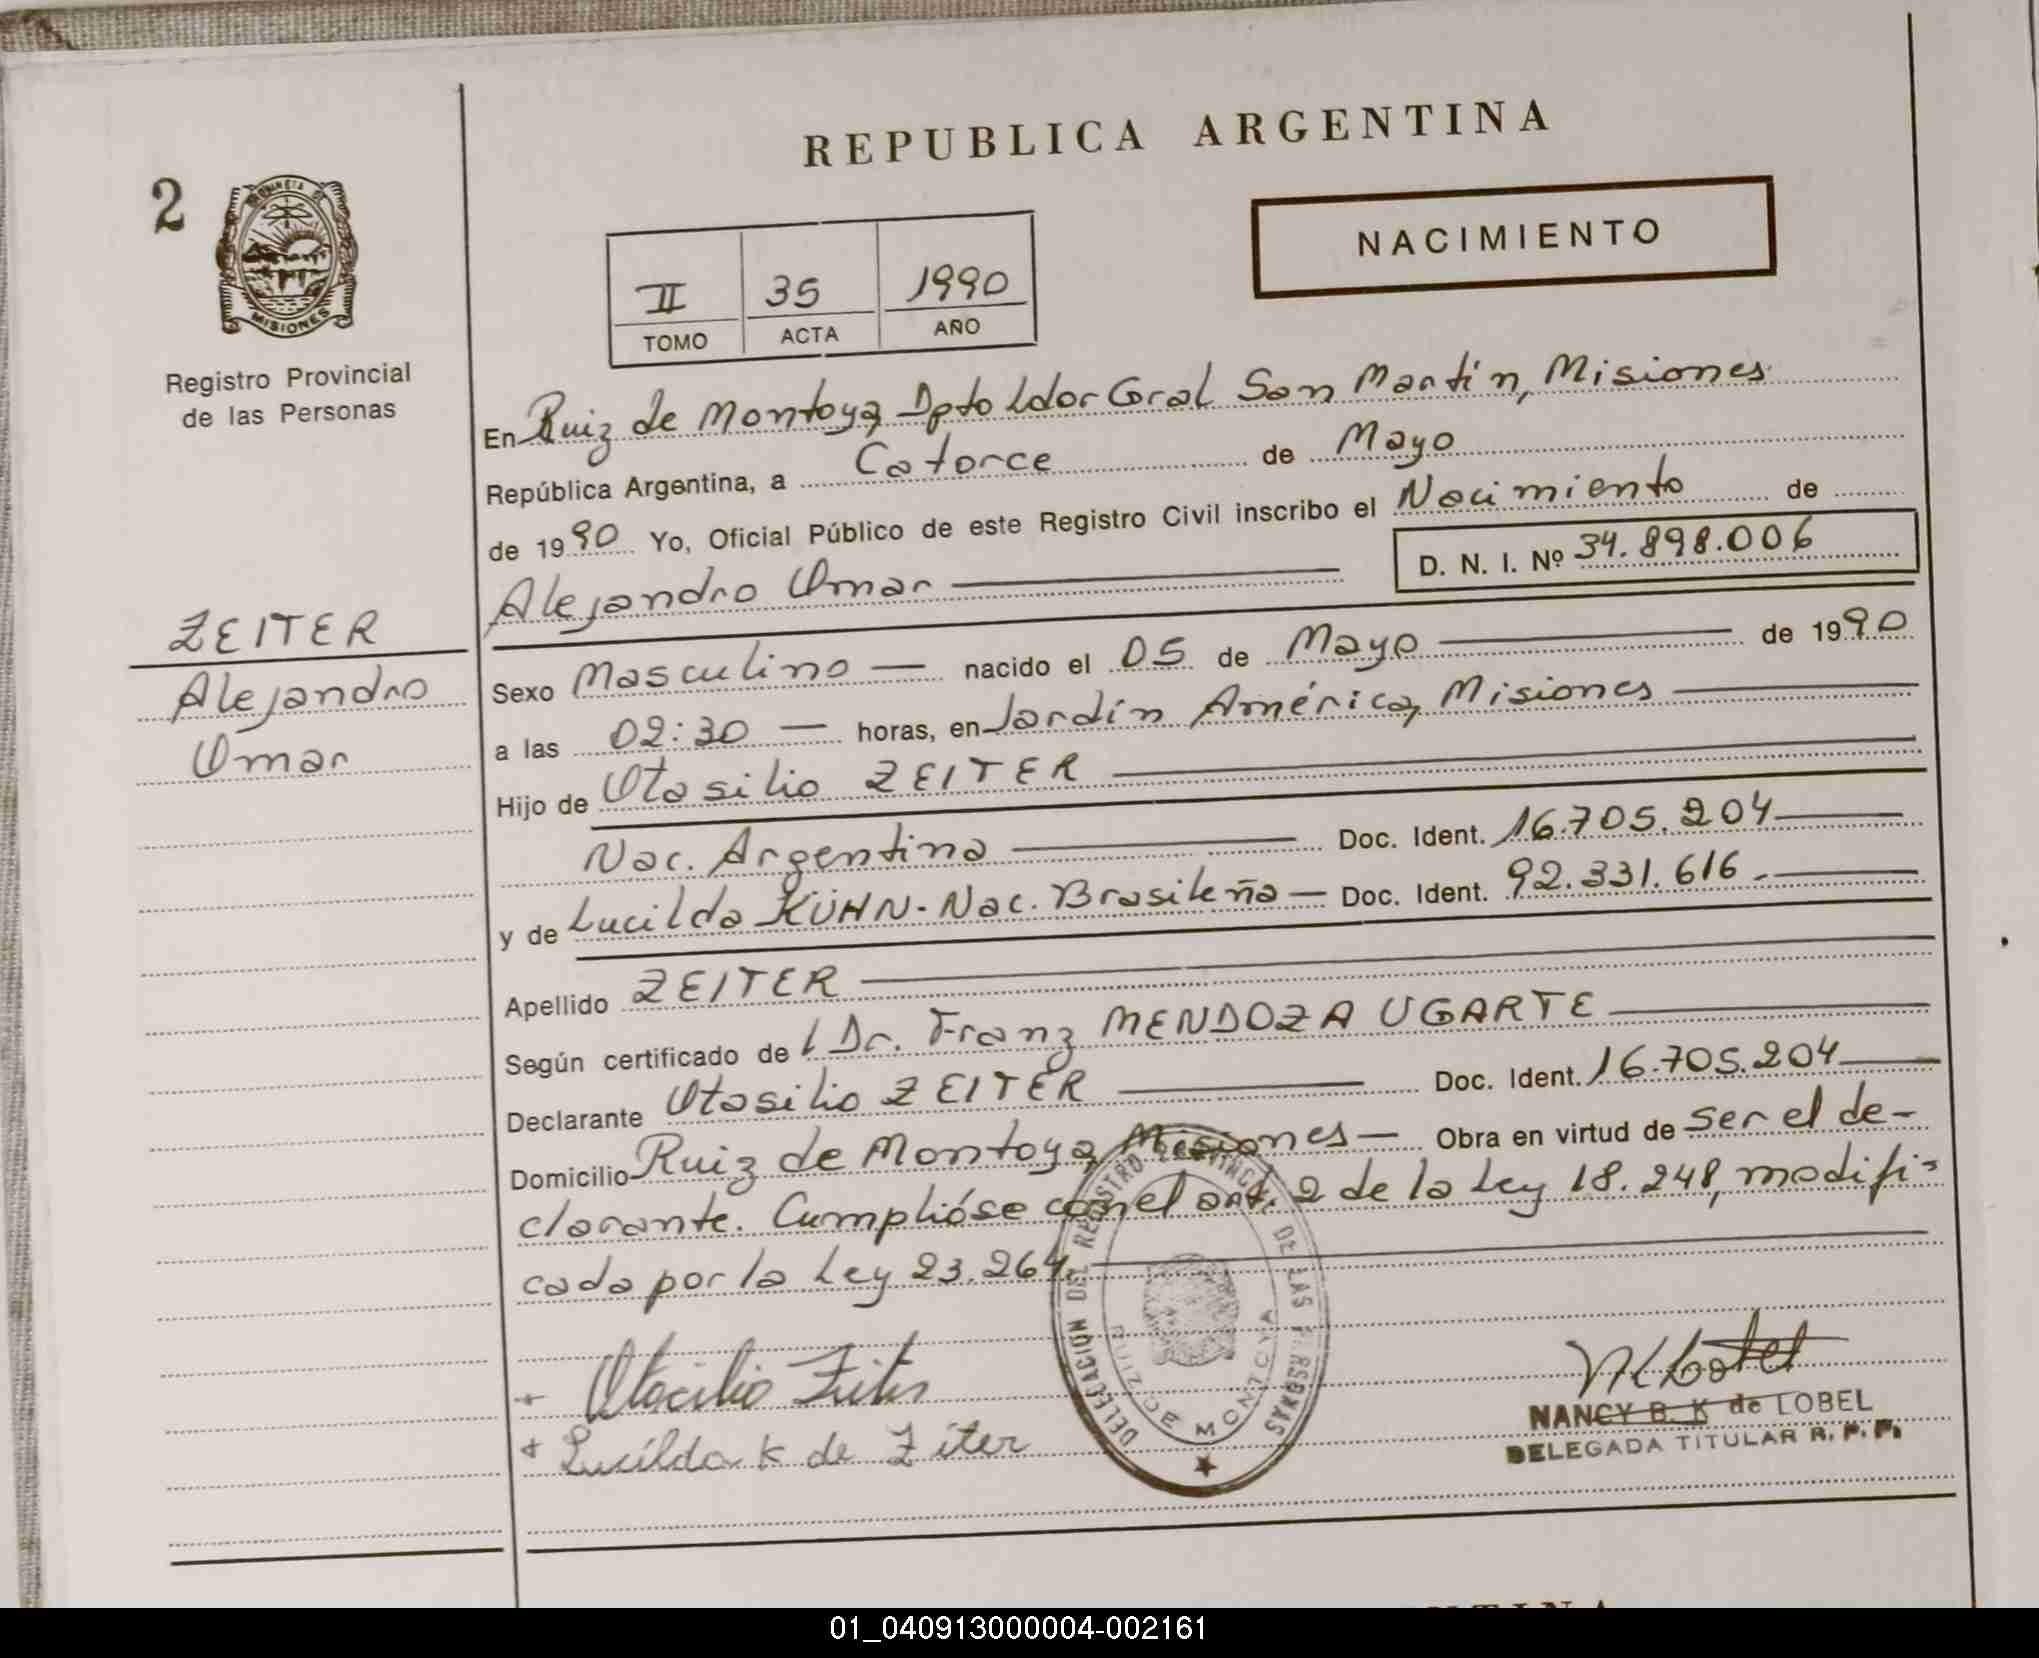 REPUBLICA ARGENTINA
2
MISIONES
Registro Provincial
de las Personas
NACIMIENTO
II 35 1990
TOMO ACTA AÑO
En Ruiz de Montoya, Dpto Ldor Gral San Martín, Misiones
República Argentina, a Catorce de Mayo
de 1990 Yo, Oficial Público de este Registro Civil inscribo el Nacimiento de
Alejandro Omar D. N. I. Nº 34.898.006
ZEITER
Alejandro
Omar
Sexo Masculino — nacido el 05 de Mayo de 1990
a las 02:30 — horas, en Jardín América, Misiones
Hijo de Otasilio ZEITER
Nac. Argentina Doc. Ident. 16.705.204
y de Lucilda KÜHN - Nac. Brasileña — Doc. Ident. 92.331.616.-
Apellido ZEITER
Según certificado del Dr. Franz MENDOZA UGARTE
Declarante Otasilio ZEITER Doc. Ident. 16.705.204
Domicilio Ruiz de Montoya, Misiones — Obra en virtud de ser el de-
clarante. Cumplióse con el art. 2 de la Ley 18.248, modifi-
cada por la Ley 23.264.
DELEGACION DEL REGISTRO PROVINCIAL DE LAS PERSONAS
RUIZ DE MONTOYA
+ Otacilio Zeiter
+ Lucilda K de Ziter
NANCY B. K de LOBEL
DELEGADA TITULAR R. P. P.
01_040913000004-002161